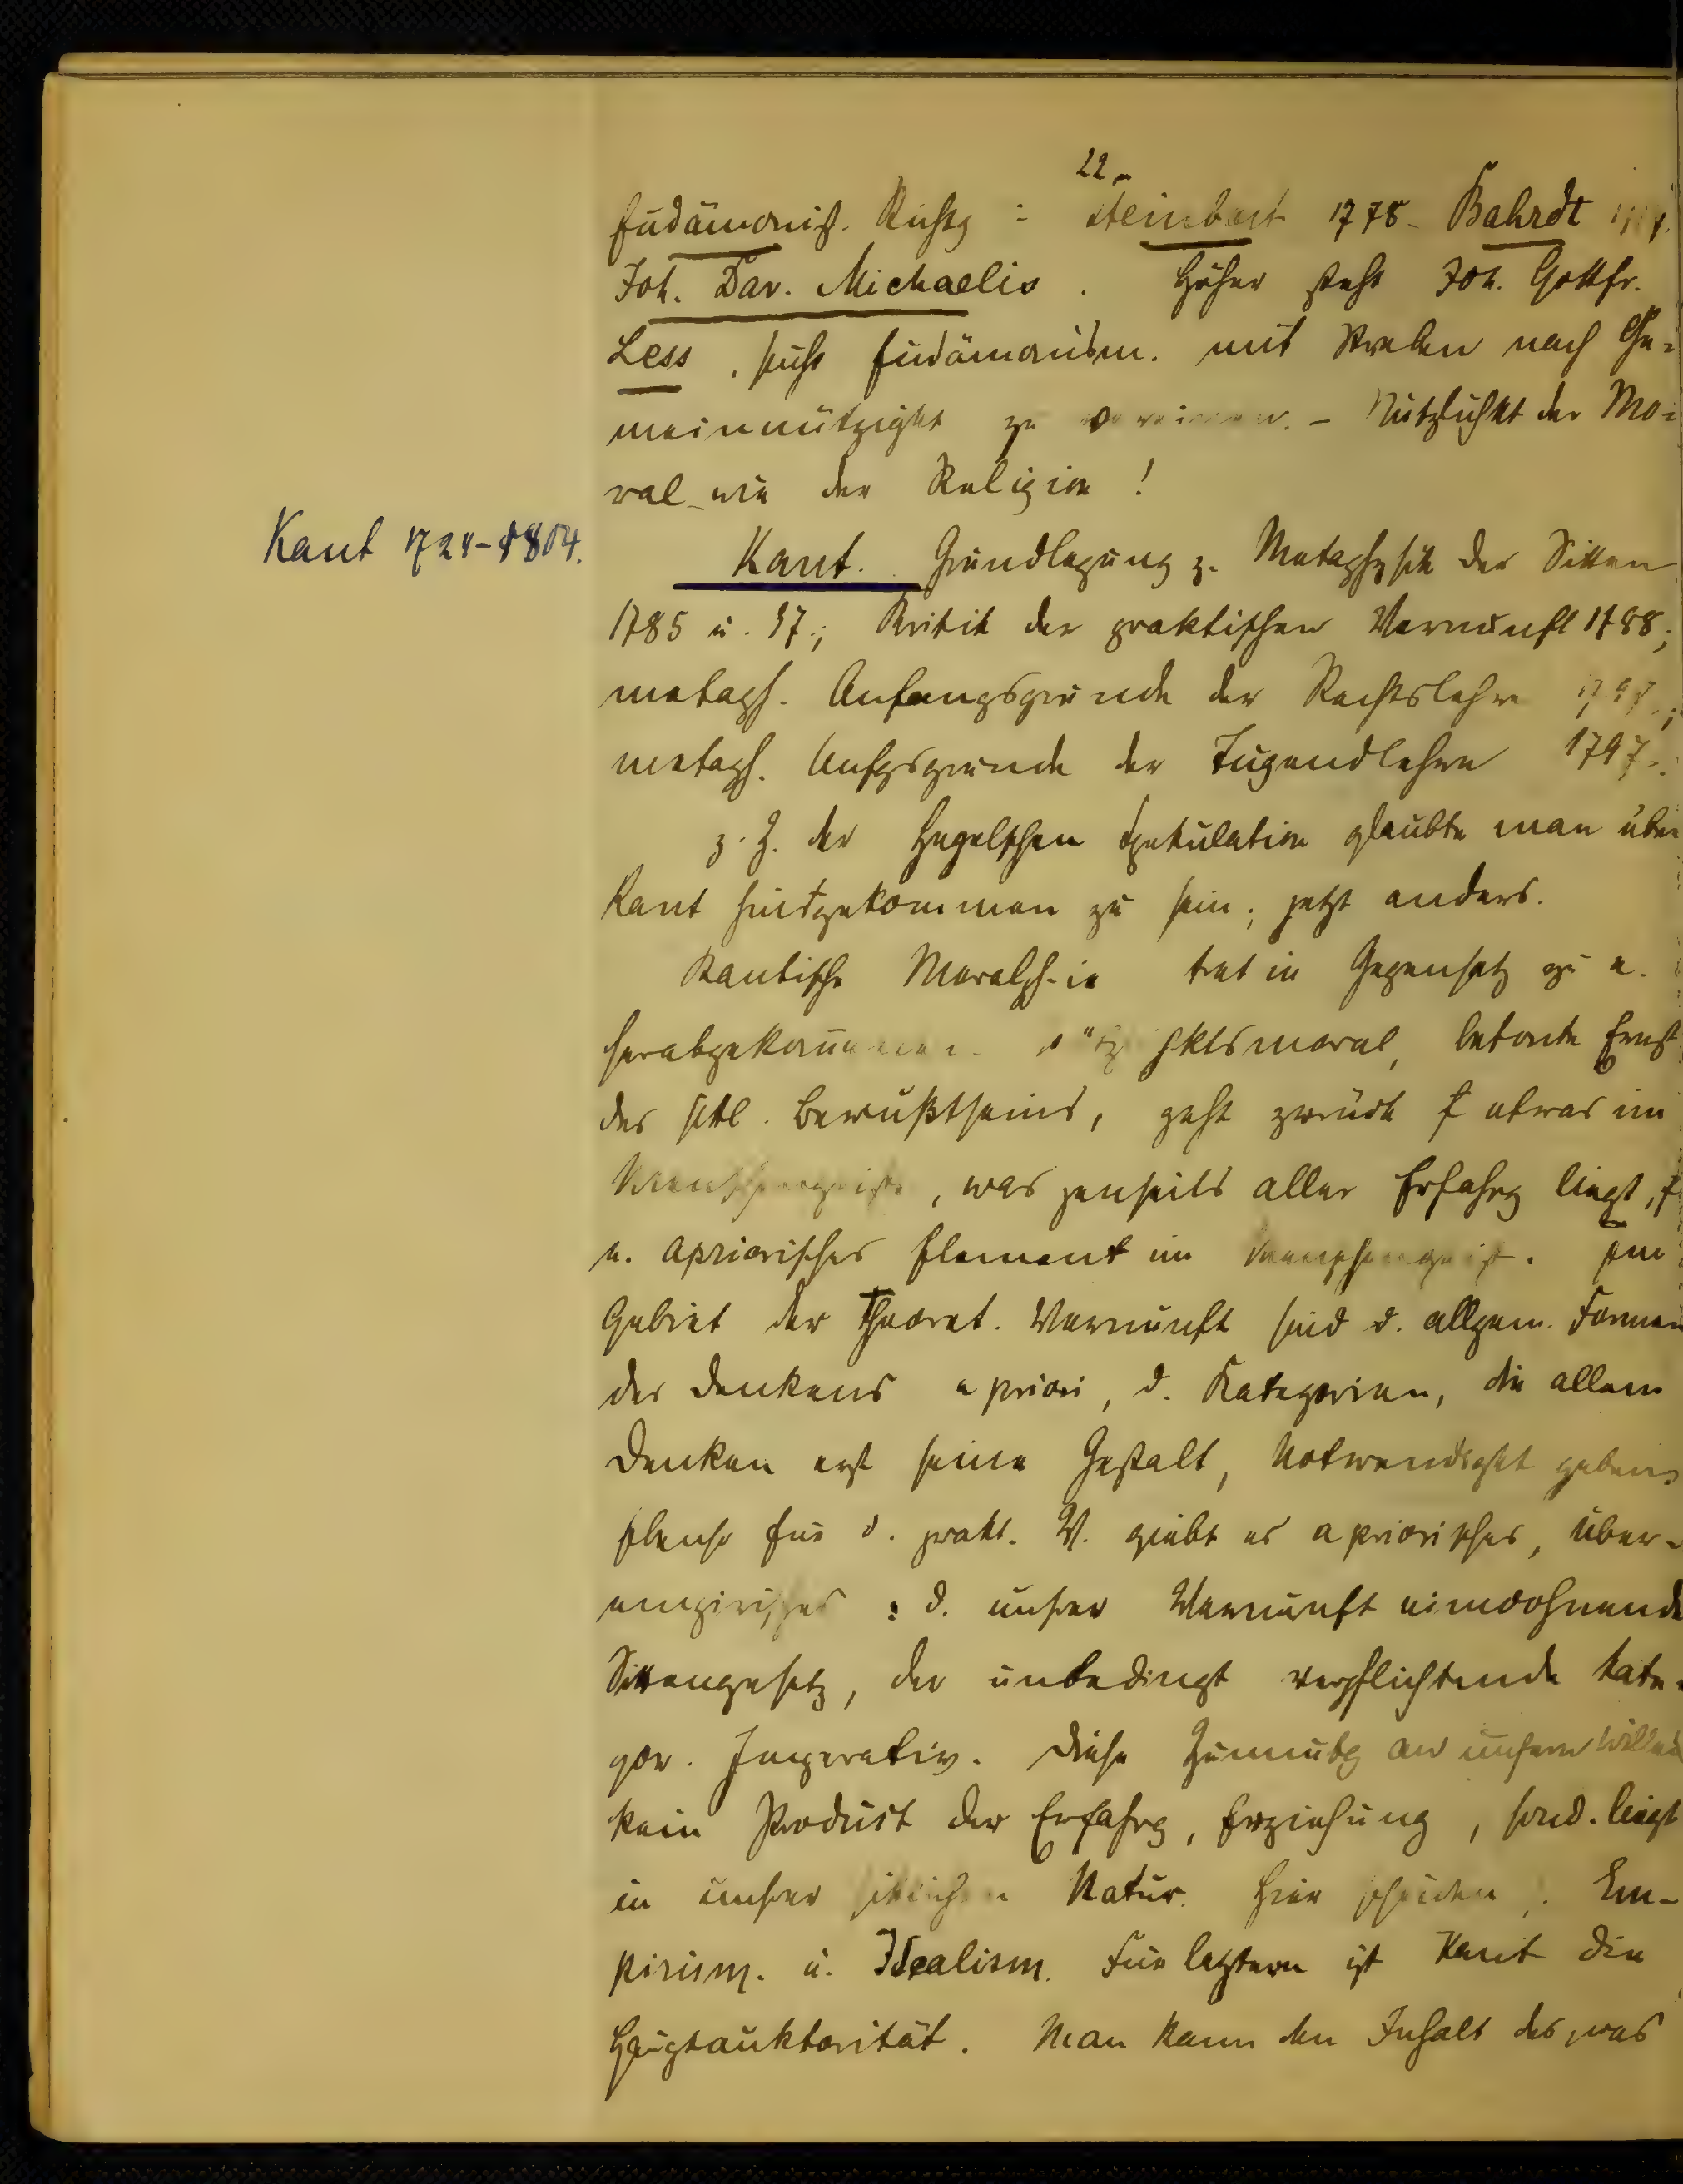 22.
Eudämonist. Richtg : Steinbart 1778 - Bahrdt
Joh. Dav. Michaelis. Höher steht Joh. Gottfr.
Less, sucht Eudämonism. mit Streben nach Ge=
meinnützigkt zu vereinen. - Nützlichkt der Mo=
ral wie der Religion!
Kant 1724-1804.
Kant. Grundlegung z. Metaphysik der Sitten
1785 u. 97; Kritik der praktischen Vernunft 1788;
metaph. Anfangsgründe der Rechtslehre 1797;
metaph. Anfgsgründe der Tugendlehre 1797.
z. Z. der Hegelschen Spekulation glaubte man über
Kant hinausgekommen zu sein; jetzt anders.
Kantische Moralph-ie trat in Gegensatz zu e.
herabgekommenen Nützlichktsmoral, betonte Ernst
des sittl. Bewußtseins, geht zurück f etwas im
Menschengeiste, was jenseits aller Erfahrg liegt, f
e. apriorisches Element im Menschengeist. Im
Gebiet der theoret. Vernunft sind d. allgem. Formen
des Denkens a priori, d. Kategorien, die allem
Denken erst seine Gestalt, Notwendigkt geben.
Ebenso für d. prakt. V. giebt es apriorisches, über-
empirisches : d. unsrer Vernunft einwohnende
Sittengesetz, der unbedingt verpflichtende kate-
gor. Imperativ. Diese Zumutg an unsern Willen
kein Produkt der Erfahrg, Erziehung, sond. liegt
in unsrer sittlichen Natur. Hier scheiden s. Em-
pirism. u. Idealism. Für letztern ist Kant die
Hauptauktorität. Man kann den Inhalt des, was